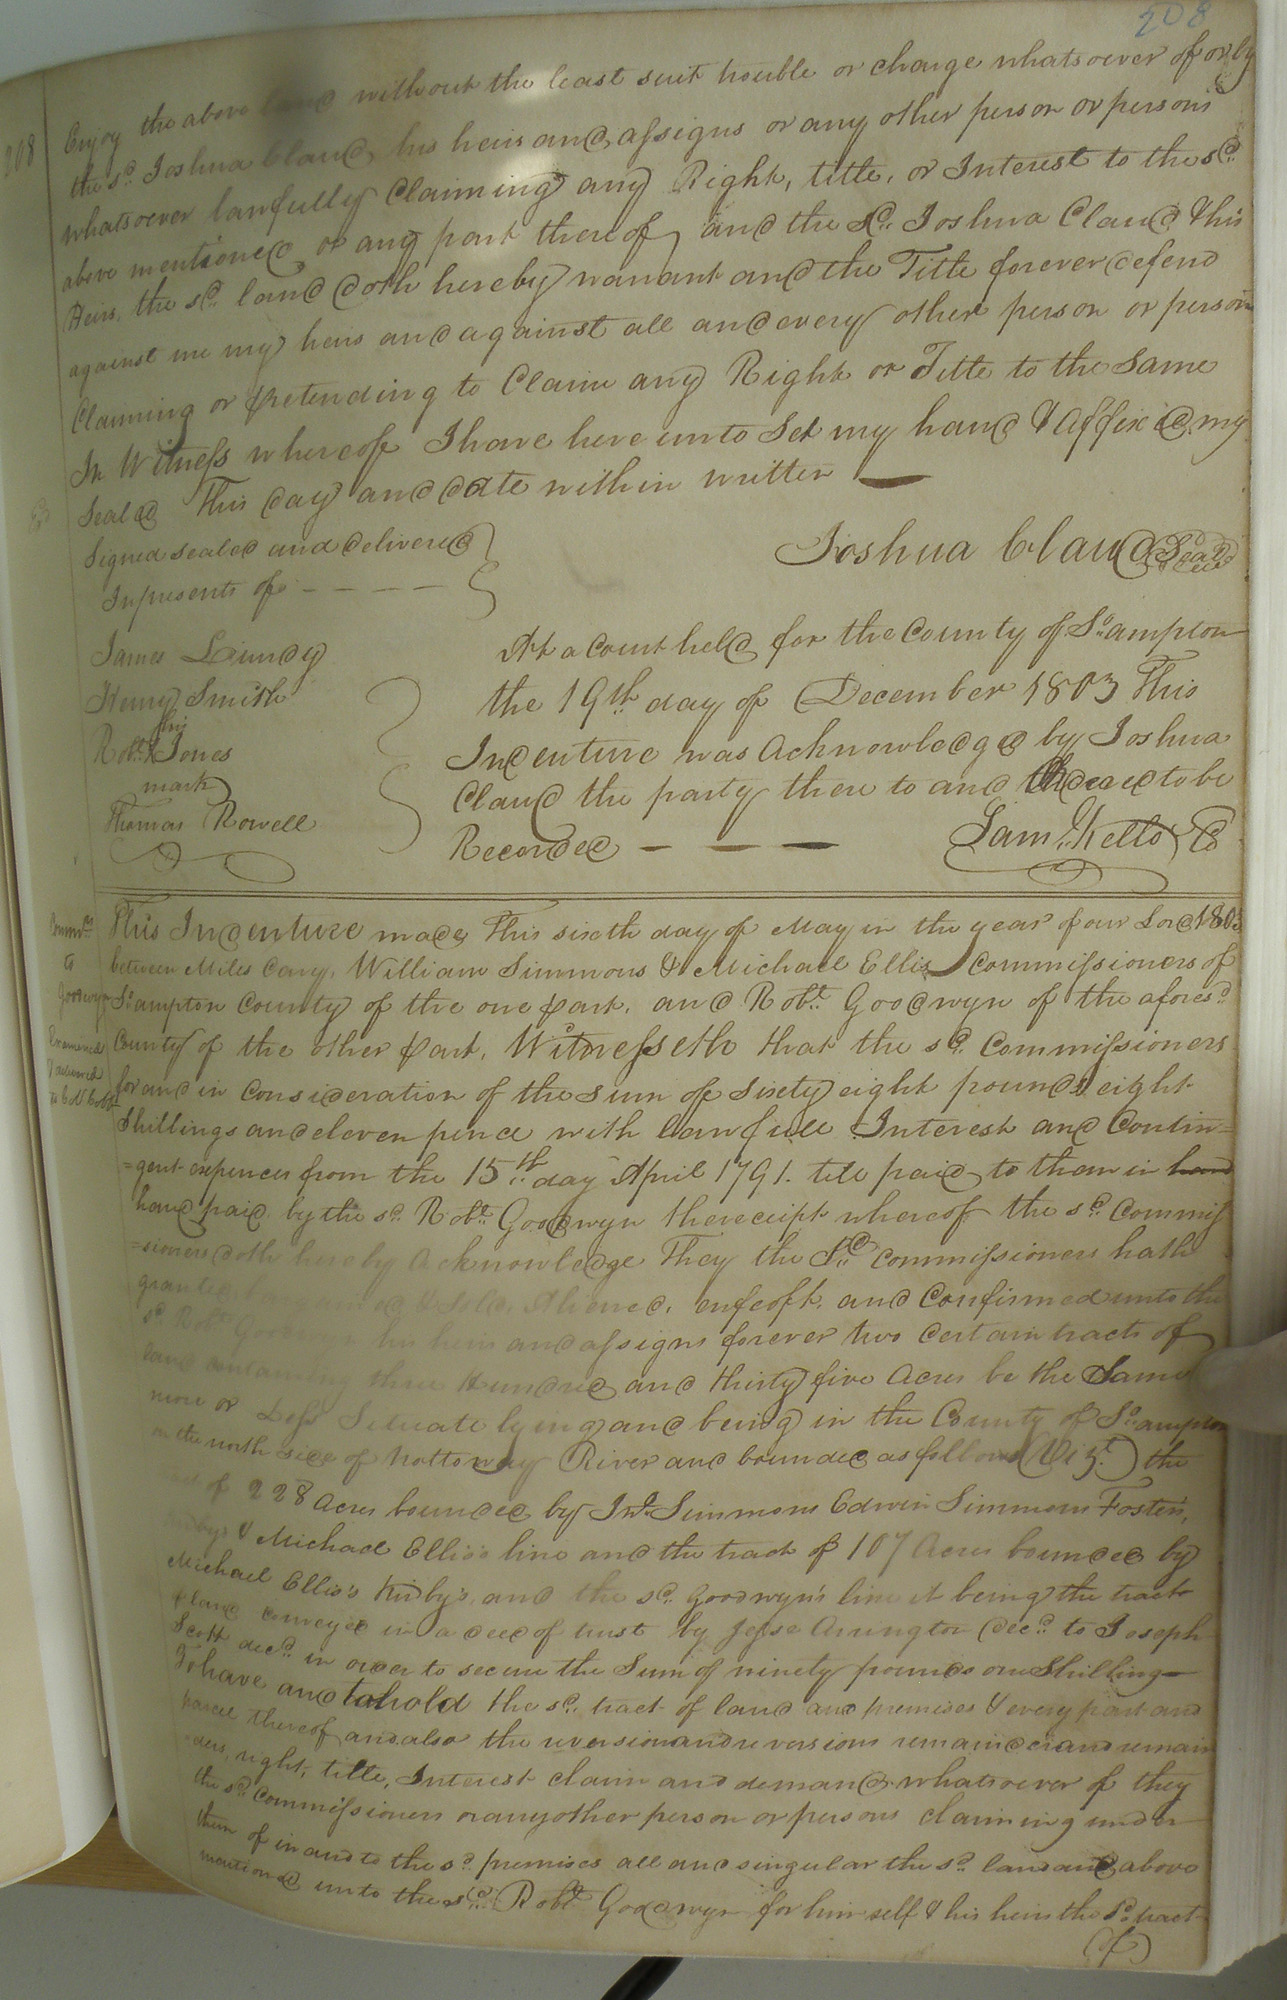 208
208
Enjoy the above land without the least suit trouble or charge whatsoever of or by
the sd. Joshua Claud, his heirs and assigns or any other person or persons
whatsoever lawfully Claiming any Right, title, or Interest to the sd.
above mentioned or any part thereof and the sd. Joshua Claud & his
Heirs, the sd. land doth hereby warrant and the Title forever defend
against me my heirs and against all and every other person or persons
Claiming or pretending to Claim any Right or Title to the Same
In Witness whereof I have here unto Set my hand & Affixed my
Seal This day and date within written
Signed sealed and delivered
In presents of
Joshua Claud Seal
James Lundy
Henry Smith
his
Robt. X Jones
mark
Thomas Rowell
At a Court held for the County of So.ampton
the 19th day of December 1803 This
Indenture was Acknowledged by Joshua
Claud the party there to and Ordered to be
Recorded
Saml. Kello CC
This Indenture made This sixth day of May in the year of our Lord 1803
between Miles Cary, William Simmons & Michael Ellis Commissioners of
So.ampton County of the one part, and Robt. Goodwyn of the aforesd.
County of the other part, Witnesseth that the sd. Commissioners
for and in Consideration of the Sum of Sixty eight pounds eight
Shillings and eleven pence with lawfull Interest and Contin=
=gent expences from the 15th day April 1791. till paid to them in hand
hand paid by the sd. Robt. Goodwyn the receipt whereof the sd. Commis
=sioners doth hereby Acknowledge They the sd. Commissioners hath
granted, & Sold, Aliened, enfeoft, and Confirmed unto the
sd. Robt. Goodwyn his heirs and assigns forever two Certain tracts of
land containing three Hundred and thirty five Acres be the Same
more or Less Situate lying and being in the County of So.ampton
on the north side of Nottoway River and bounded as follows (Viz.) the
of 228 Acres bounded by Simmons Edwin Simmons Foster's,
& Michael Ellis's line and the tract of 107 Acres bounded by
Michael Ellis's Kirby's, and the sd. Goodwyn's line it being the tract
of land conveyed in a deed of trust by Jesse Arrington decd. to Joseph
Scott decd. in order to secure the Sum of ninety pounds one Shilling
To have and to hold the sd. tract of land and premises & every part and
parcel thereof and also the reversion and reversions remainder and remain
=ders, right, title, Interest claim and demand whatsoever of they
the sd. Commissioners or any other person or persons claiming under
them of in and to the sd. premises all and singular the sd. land and above
mentioned unto the sd. Robt. Goodwyn for him self & his heirs the sd. tract
(of)